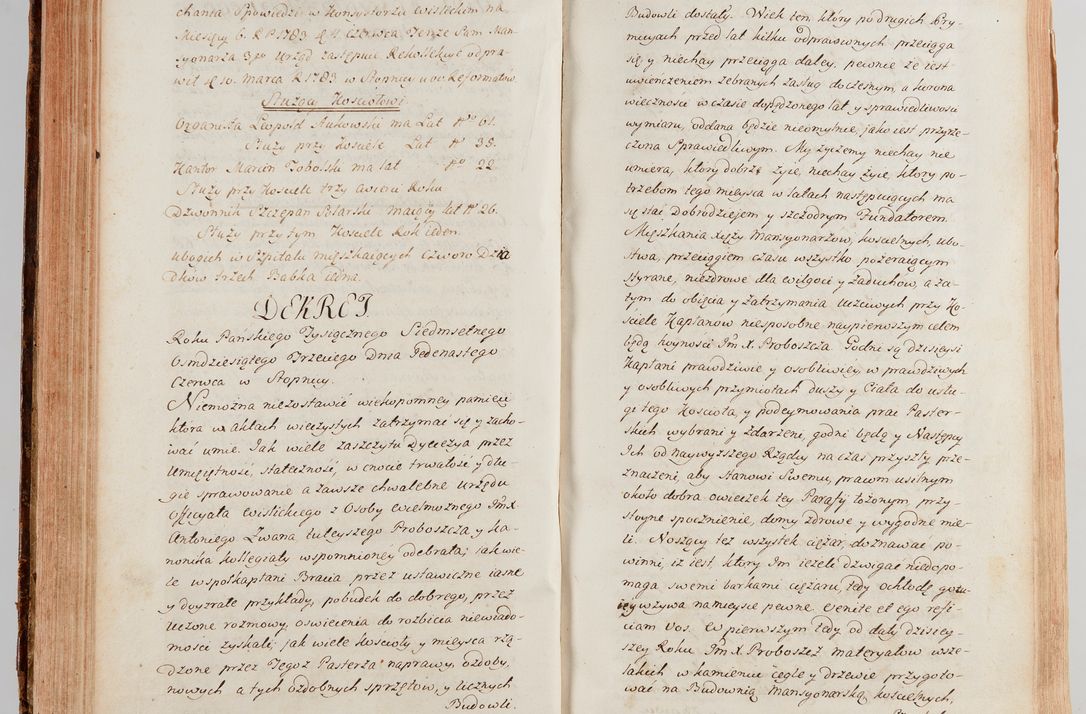 chania Spowiedzi w Konsystorzu wislickim na
Miesięcy 6. R P 1783 d. 4 Czerwca Tenże Pam Man-
zyonarza 3go Urząd zastępuie Rekollekcye odpra-
wił d. 10. Marca R 1783 w Stopnicy u oo Reformatow
Słudzy Kosciołowi.
Organista Leopold Sukowski ma Lat No 61.
Służy przy Kosciele Lat No 35.
Kantor Marcin Tobolski ma lat No 22
Służy przy Kosciele trzy cwierci Roku
Dzwonnik Szczepan Sklarski maiący lat No 26.
Służy przy tym Kosciele Rok ieden.
ubogich w Szpitalu mięszkaiących czworo Dzia
Dkow trzech Babka iedna.
DEKRET
Roku Pańskiego Tysiącznego Siedmsetnego
Osmdziesiątego Trzeciego Dnia Jedenastego
Czerwca w Stopnicy.
Niemożna niezostawić wiekopomney pamięci
ktora w aktach wieczystych zatrzymać się y zacho-
iwać umie. Jak wiele zaszczytu Dyecezya przez
Umieiętność, stateczność, w cnocie trwałość y dłu-
gie sprawowanie a zawsze chwalebne urzędu
Officyała wislickiego z Osoby wielmożnego Jm X.
Antoniego Zwana tuteyszego Proboszcza y ka-
nonika kollegiaty wspomnioney odebrała; iak wie-
le wspołkapłani Bracia przez ustawiczne iasne
y doyzrałe przykłady, pobudek do dobrego, przez
uczone rozmowy, oswiecenia do rozbicia niewiado-
mości zyskali; jak wiele koscioły y mieysca rzą-
dzone przez Tegoż Pasterza naprawy, ozdoby,
nowych a tych ozdobnych sprzętow, y licznych
Budowli.
Budowli dostały. Wiek ten, ktory po drugich Pry-
micyach przed lat kilku odprawionych przeciąga
się y niechay przeciąga daley, pewnie że iest
uwienczeniem zebranych zasług doczesnym, a korona
wieczności w czasie dopędzonego lat y sprawiedliwości
wymiaru, oddana będzie nieomylnie, jako iest przyrze-
czona Sprawiedliwym. My życzemy niechay nie
umiera, ktory dobrze żyie, niechay żyie, ktory po-
trzebom tego mieysca w latach następuiących ma
się stać Dobrodziejem y szczodrym Fundatorem.
Mięszkania xięży Mansyonarzow, koscielnych, ubo-
stwa, przeciągiem czasu wszystko pożeraiącym
styrane, niezdrowe dla wilgoci y zaduchow, a za-
tym do obięcia y zatrzymania uczciwych przy Ko-
sciele Kapłanow niesposobne naypierwszym celem
będą hoyności Jm X. Proboszcza. Godni są dzisieysi
Kapłani prawdziwie y osobliwiey w prawdziwych
y osobliwych przymiotach duszy y Ciała do usłu-
gi tego Kościoła, y podeymowania prac Paster-
skich wybrani y zdarzeni, godni będą y Następcy
Ich od naywyższego Rządcy na czas przyszły prze-
znaczeni, aby stanowi Swemu, pracom usilnym
około dobra owieczek tey Parafij łożonym, przy-
stoyne spocznienie, domy zdrowe y wygodne mie-
li. Noszący też wszystek ciężar, doznawać po-
winni, iż iest, ktory Im ieżeli dzwigać niedopo-
maga swemi barkami ciężaru, tedy ochłodę gotu-
ie y wzywa na mieysce pewne. Venite et ego refi-
ciam Vos. W pierwszym tedy od daty dzisiey-
szey Roku Jm X. Proboszcz materyałow wsze-
lakich w kamieniu cegle y Drzewie przygoto-
wać na Budownią Mansyonarską, koscielnych,